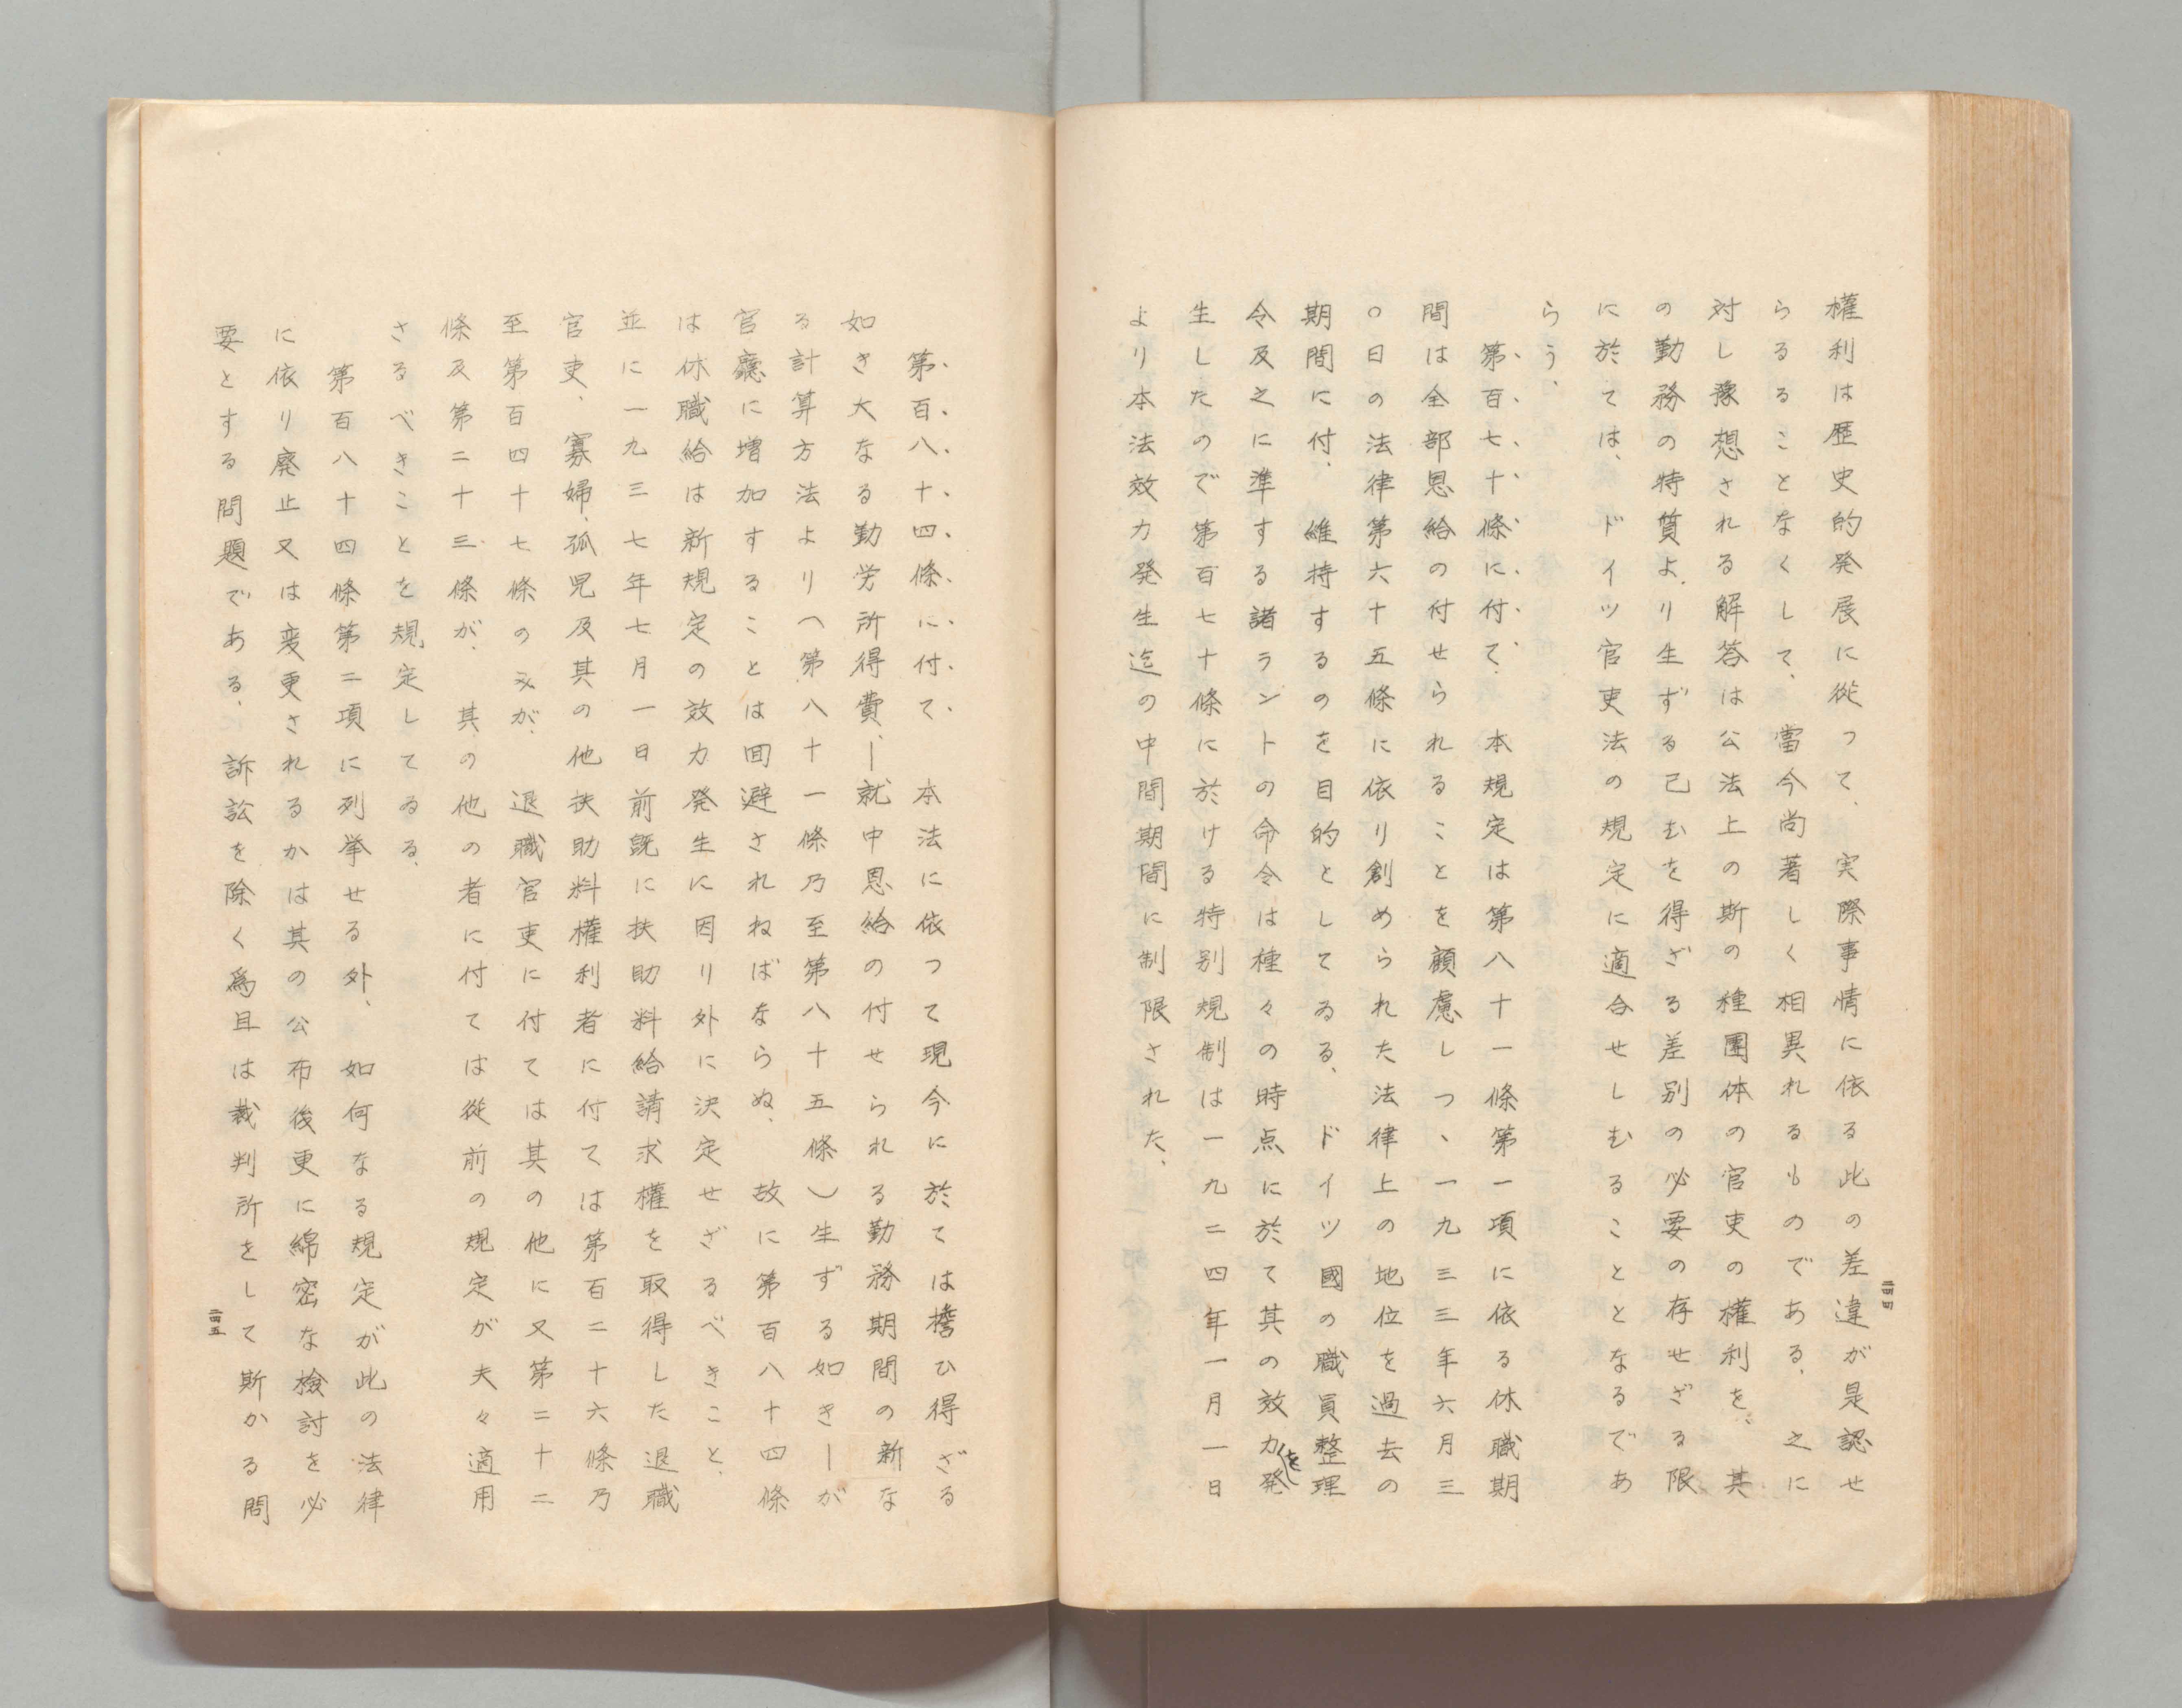 權利は歴史的発展に從つて、実際事情に依る此の差違が是認せ
らるることなくして、當今尚著しく相異れるものである、之に
対し豫想される解答は公法上の斯の種團体の官吏の權利を、其
の勤務の特質より生ずる已むを得ざる差別の必要の存せざる限
に於ては、ドイツ官吏法の規定に適合せしむることとなるであ
らう、
第百七十條に付て、本規定は第八十一條第一項に依る休職期
間は全部恩給の付せられることを顧慮しつヽ一九三三年六月三
〇日の法律第六十五條に依り創められた法律上の地位を過去の
期間に付、維持するのを目的としてゐる、ドイツ國の職員整理
令及之に準する諸ラントの命令は種々の時点に於て其の効力を発
生したので第百七十條に於ける特別規制は一九二四年一月一日
より本法效力発生迄の中間期間に制限された、
二四四
第百八十四條に付て、本法に依つて現今に於ては擔ひ得ざる
如き大なる勤労所得費、—就中恩給の付せられる勤務期間の新な
る計算方法より（第八十一條乃至第八十五條）生ずる如き—が
官廳に増加することは回避されねばならぬ、故に第百八十四條
は休職給は新規定の效力発生に因り外に決定せざるべきこと、
並に一九三七年七月一日前既に扶助料給請求權を取得した退職
官吏、寡婦、孤児及其の他扶助料權利者に付ては第百二十六條乃
至第百四十七條のみが、退職官吏に付ては其の他に又第二十二
條及第二十三條が、其の他の者に付ては從前の規定が夫々適用
さるべきことを規定してゐる、
第百八十四條第二項に列挙せる外、如何なる規定が此の法律
に依り廃止又は変更されるかは其の公布後更に綿密な檢討を必
要とする問題である、訴訟を除く爲且は裁判所をして斯かる問
二四五